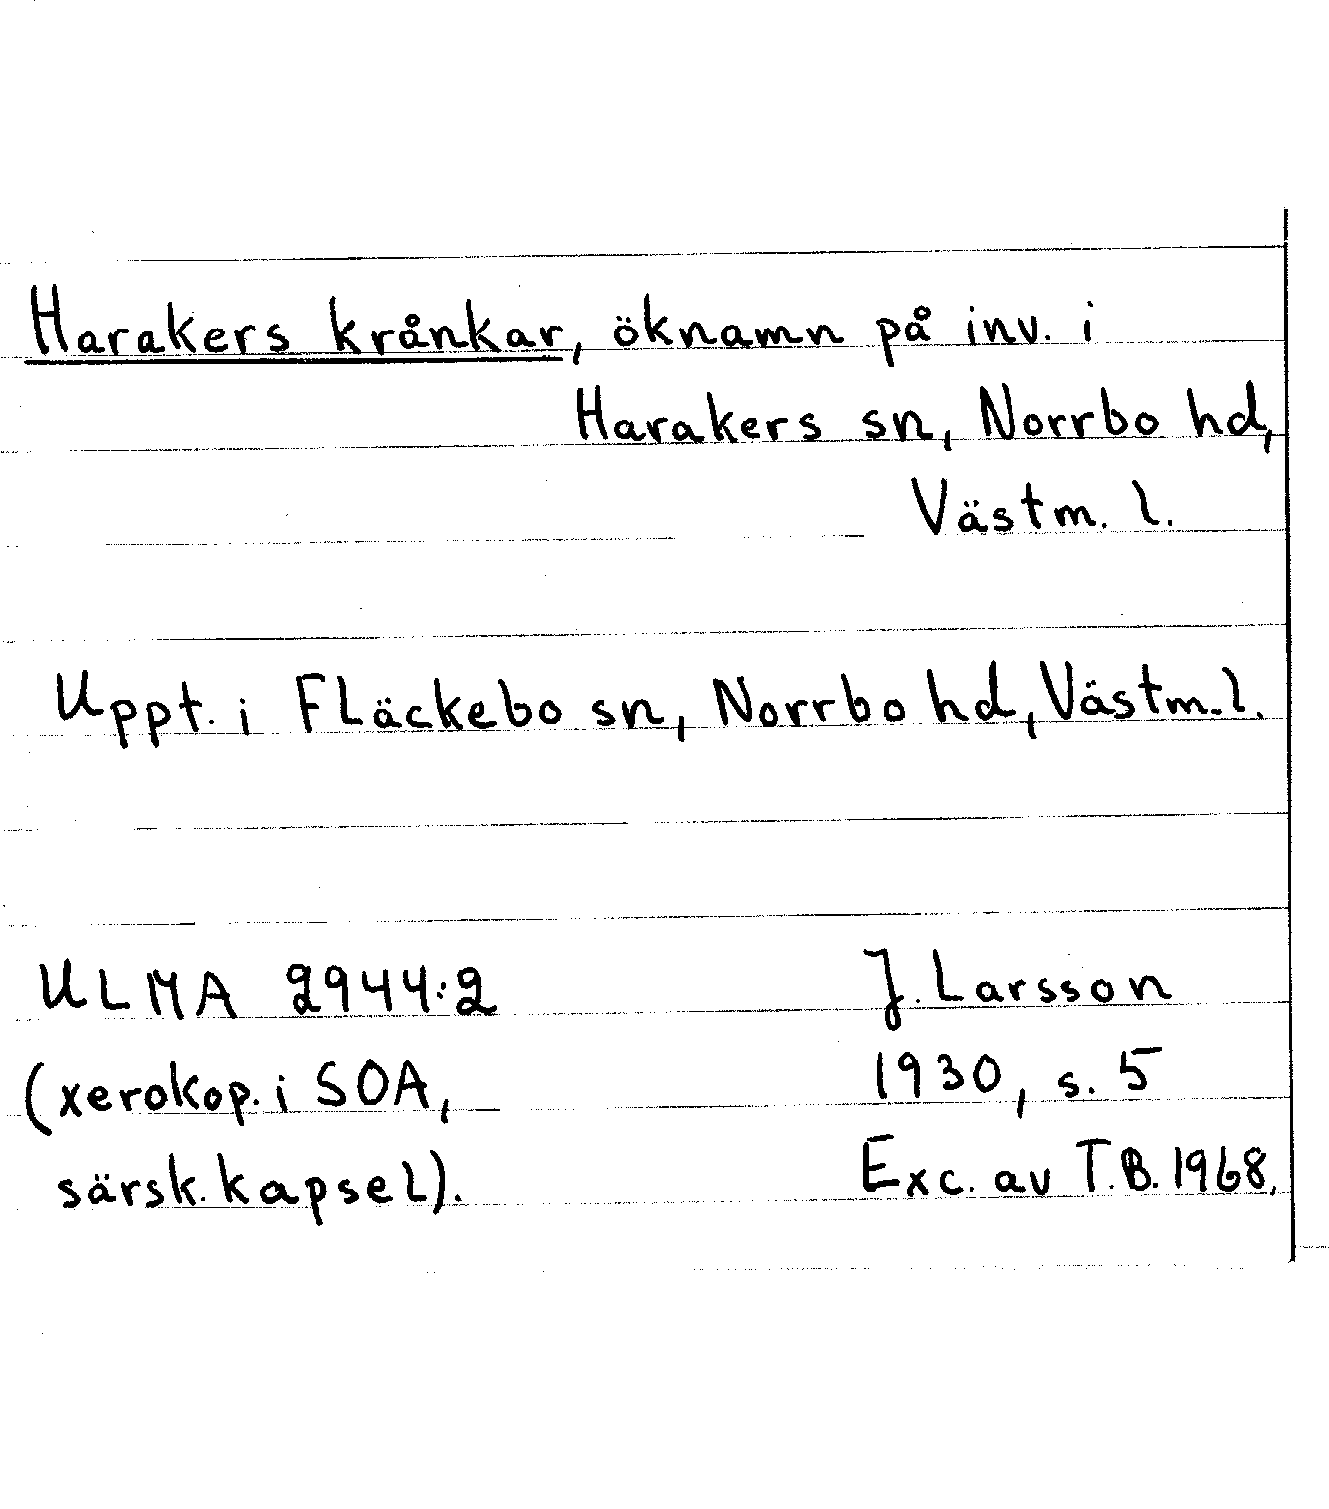 Harakers krånkar, öknamn på inv. i
Harakers sn, Norrbo hd,
Västm. l.
Uppt. i Fläckebo sn, Norrbo hd, Västm. l.
ULMA 2944:2
(xerokop. i SOA,
särsk. kapsel).
J. Larsson
1930, s. 5
Exc. av T.B. 1968.